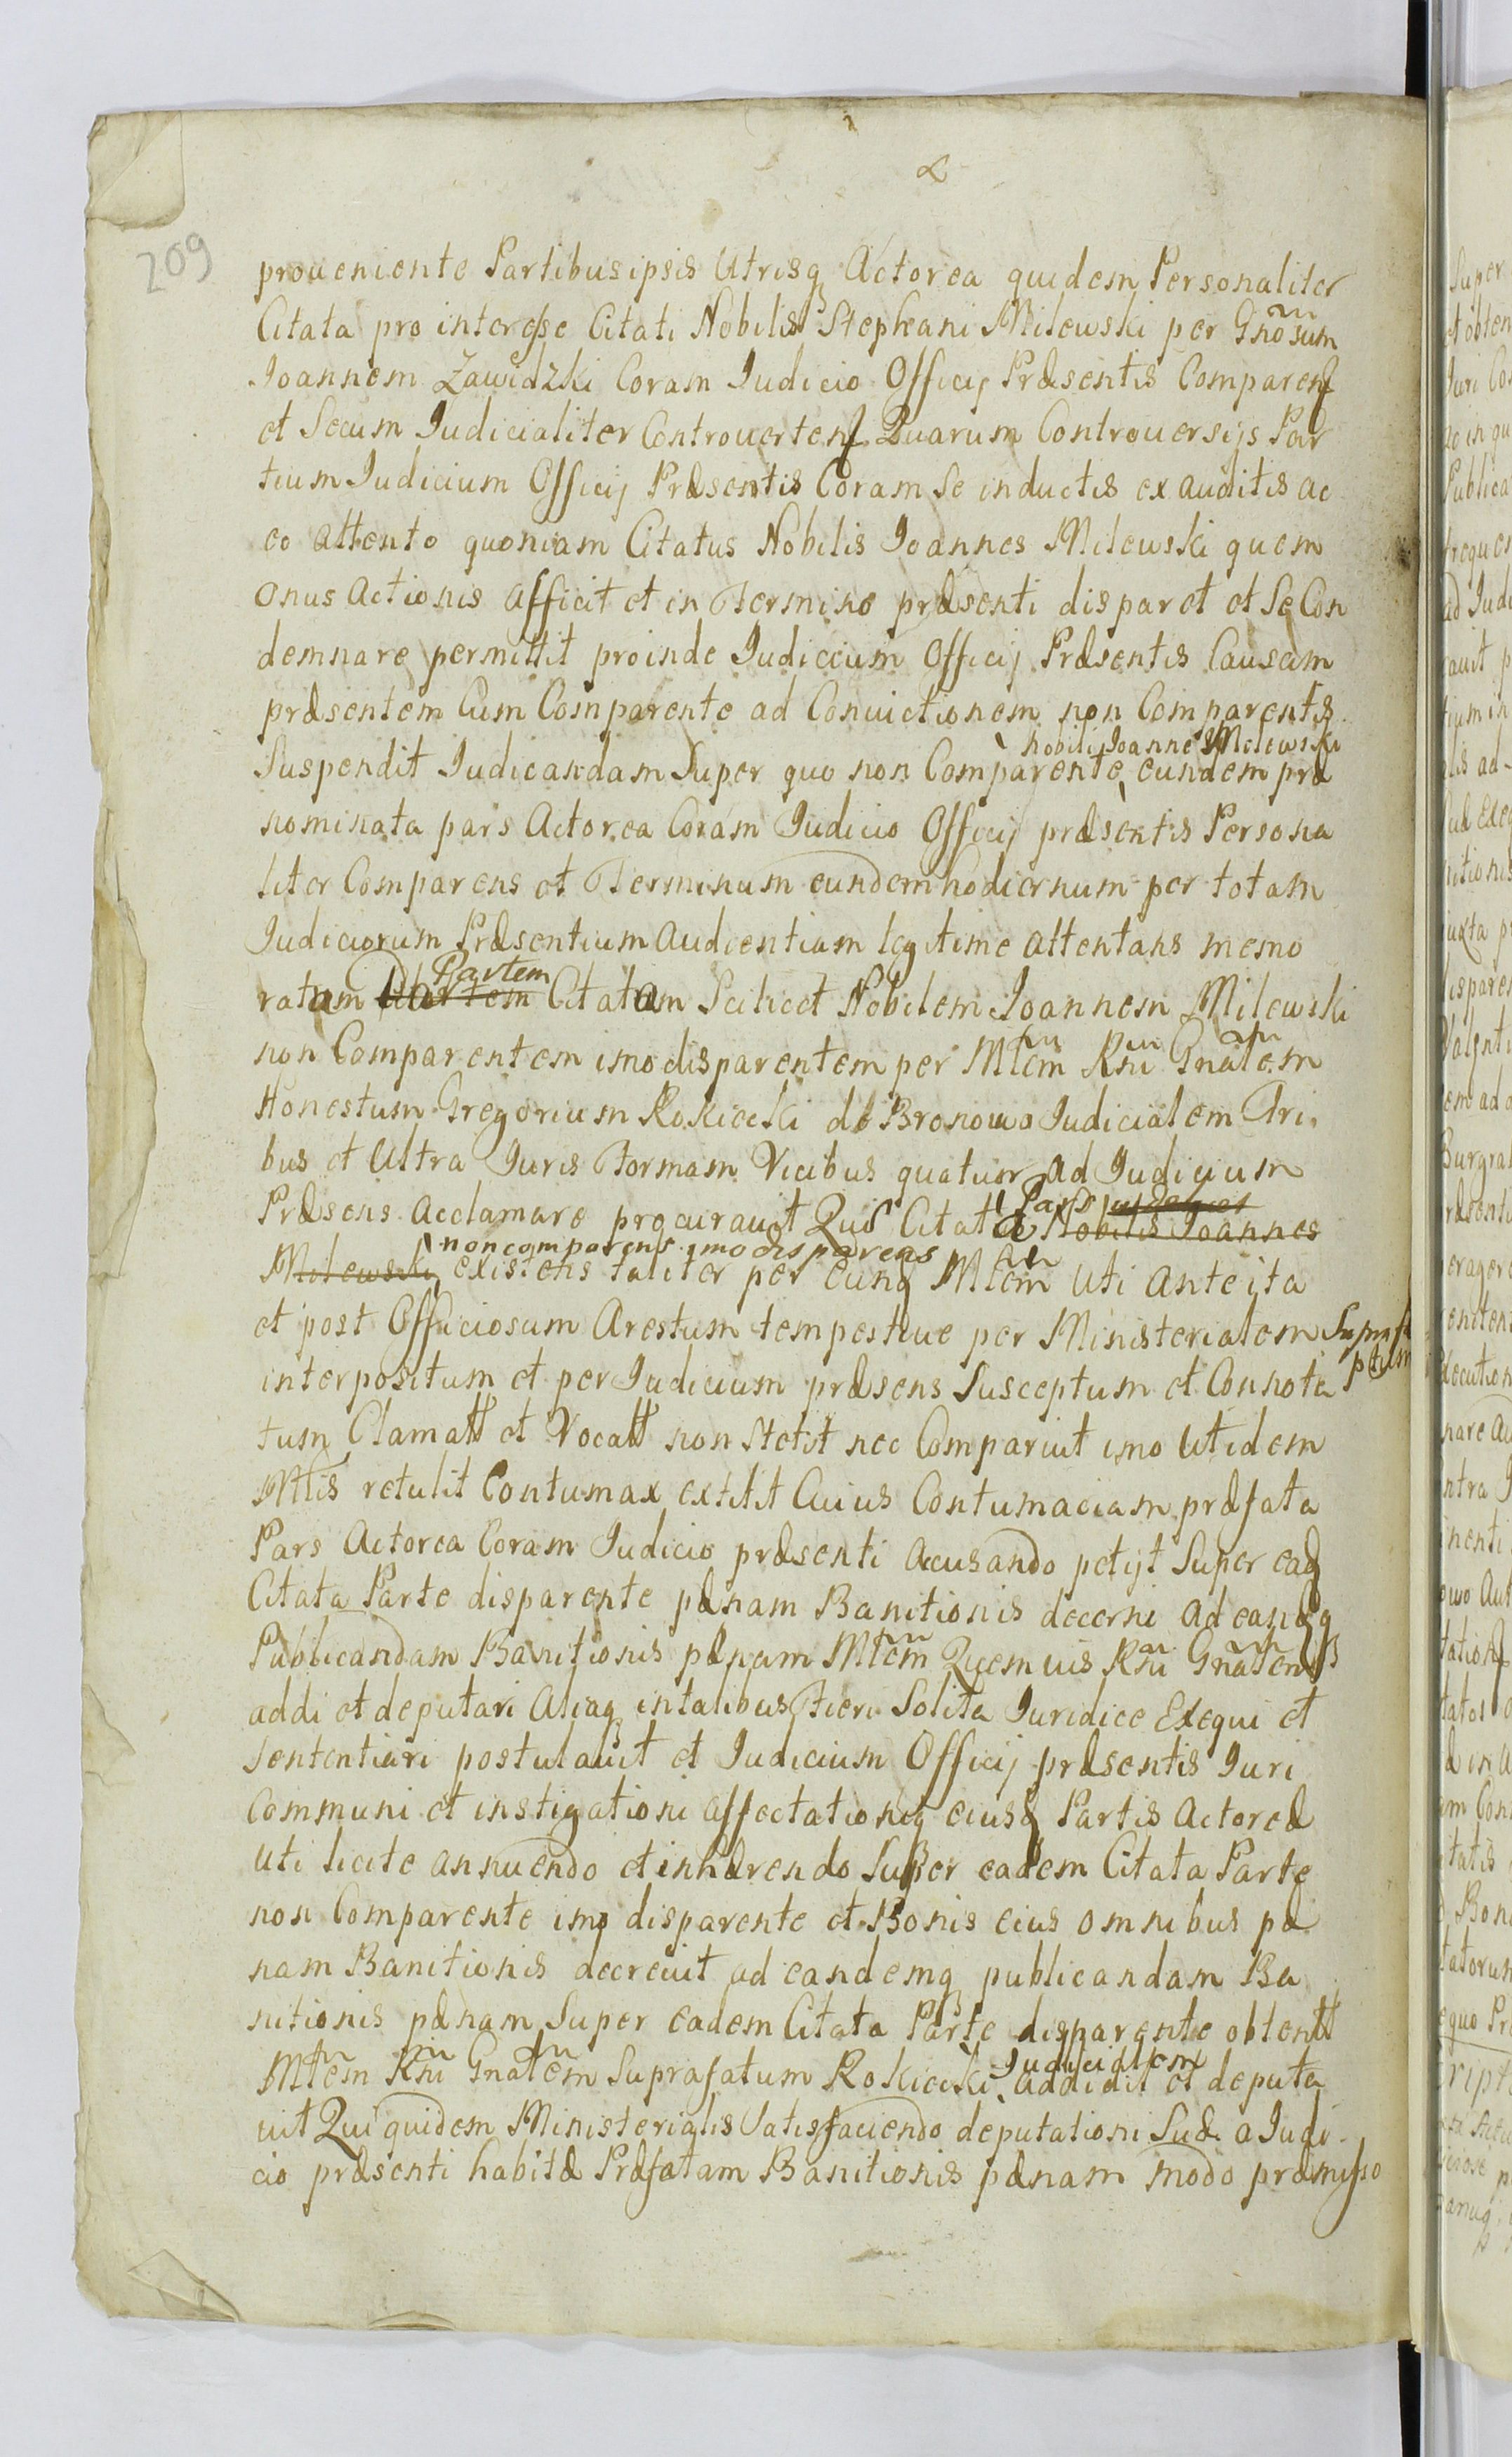 209
proueniente Partibus ipsis Utrisq Actorea quidem Personaliter
Citata pro interesse Citati Nobilis Stephani Milewski per Gnosum
Joannem Zawidzki Coram Judicio Officij Præsentis Comparen
et Secum Judicialiter Controuerten Quarum Controuersijs Par
tium Judicium Officij Præsentis Coram Se inductis ex auditis ac
eo attento quoniam Citatus Nobilis Joannes Milewski quem
onus Actionis afficit et in Termino præsenti disparet et Se Con
demnare permittit proinde Judicium Officij Præsentis Causam
præsentem Cum Comparente ad Conuictionem non Comparentis
nobili Joanne Milewski
Suspendit Judicandam Super quo non Comparente eundem præ
nominata pars Actorea Coram Judicio Officij præsentis Persona
liter Comparens et Terminum eundem hodiernum per totam
Judiciorum Præsentium Audientiam legitime attentans memo
Partem
ratam Partem Citatam Scilicet Nobilem Joannem Milewski
non Comparentem imo disparentem per Mtem Rni Gnatem
Honestum Gregorium Rokicki de Bronowo Judicialem Tri
bus et Ultra Juris Formam Vicibus quatuor ad Judicium
Pars
Præsens Acclamare procurauit Quæ Citata Nobilis Joannes
non comparens imo disparens
Milewski existens taliter per eunq Mtem Uti ante ita
et post Officiosum Arestum tempestiue per Ministerialem
interpositum et per Judicium præsens Susceptum et Connota
tum Clamatt et Vocatt non Stetit nec Comparuit imo Ut idem
Mtlis retulit Contumax extitit Cuius Contumaciam præfata
Pars Actorea Coram Judicio præsenti Accusando petijt Super eaq
Citata Parte disparente pænam Banitionis decerni ad eandq
Publicandam Banitionis pænam Mtem Quemuis Rni Gnatem
addi et deputari Aliaq in talibus Fieri Solita Juridice Exequi et
Sententiari postulauit et Judicium Officij præsentis Juri
Communi et instigationi affectationiq eiusq Partis Actoreæ
Uti licite annuendo et inhærendo Super eadem Citata Parte
non Comparente imo disparente et Bonis eius omnibus pæ
nam Banitionis decreuit ad eandemq publicandam Ba
nitionis pænam Super eadem Citata Parte disparente obtentt
Judicialem
Mtem Rni Gnatem Suprafatum Rokicki addidit et deputa
uit Qui quidem Ministerialis Satisfaciendo deputationi Suæ a Judi
cio præsenti habitæ Præfatam Banitionis pænam modo præmisso